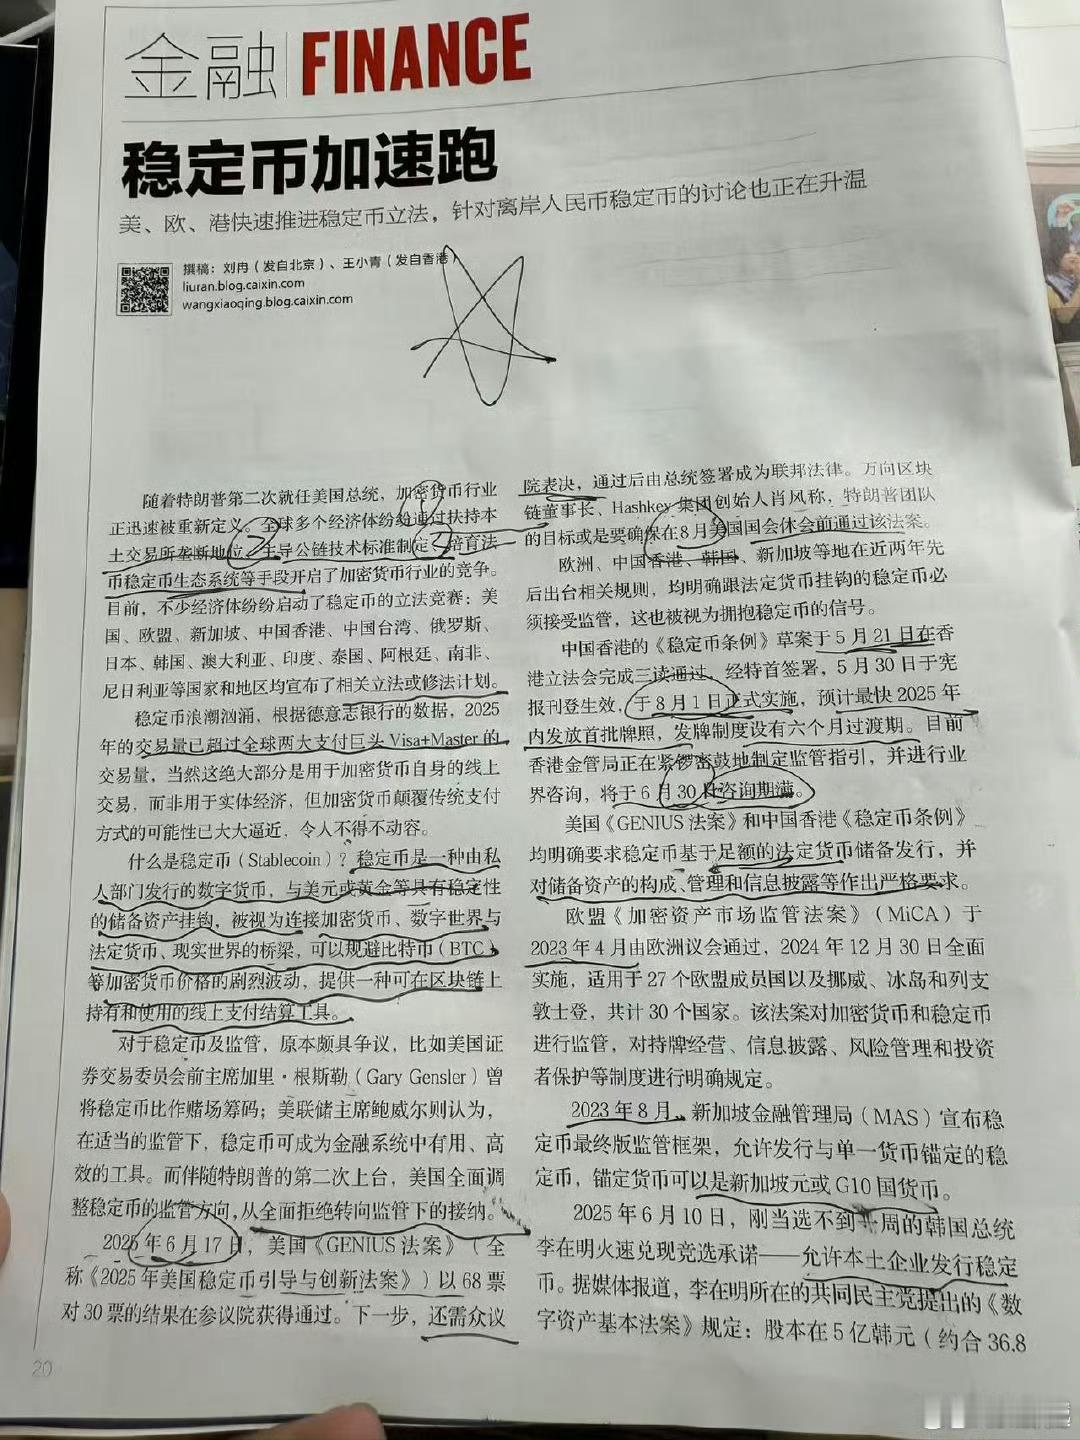 金融 FINANCE
稳定币加速跑
美、欧、港快速推进稳定币立法，针对离岸人民币稳定币的讨论也正在升温
撰稿：刘冉（发自北京）、王小青（发自香港）
liuran.blog.caixin.com
wangxiaoqing.blog.caixin.com
随着特朗普第二次就任美国总统，加密货币行业
正迅速被重新定义。全球多个经济体纷纷通过扶持本
土交易所垄断地位、主导公链技术标准制定、培育法
币稳定币生态系统等手段开启了加密货币行业的竞争。
目前，不少经济体纷纷启动了稳定币的立法竞赛：美
国、欧盟、新加坡、中国香港、中国台湾、俄罗斯、
日本、韩国、澳大利亚、印度、泰国、阿根廷、南非、
尼日利亚等国家和地区均宣布了相关立法或修法计划。
稳定币浪潮汹涌，根据德意志银行的数据，2025
年的交易量已超过全球两大支付巨头Visa+Master的
交易量，当然这绝大部分是用于加密货币自身的线上
交易，而非用于实体经济，但加密货币颠覆传统支付
方式的可能性已大大逼近，令人不得不动容。
什么是稳定币（Stablecoin）？稳定币是一种由私
人部门发行的数字货币，与美元或黄金等具有稳定性
的储备资产挂钩，被视为连接加密货币、数字世界与
法定货币、现实世界的桥梁，可以规避比特币（BTC）
等加密货币价格的剧烈波动，提供一种可在区块链上
持有和使用的线上支付结算工具。
对于稳定币及监管，原本颇具争议，比如美国证
券交易委员会前主席加里·根斯勒（Gary Gensler）曾
将稳定币比作赌场筹码；美联储主席鲍威尔则认为，
在适当的监管下，稳定币可成为金融系统中有用、高
效的工具。而伴随特朗普的第二次上台，美国全面调
整稳定币的监管方向，从全面拒绝转向监管下的接纳。
2025年6月17日，美国《GENIUS法案》（全
称《2025年美国稳定币引导与创新法案》）以68票
对30票的结果在参议院获得通过。下一步，还需众议
院表决，通过后由总统签署成为联邦法律。万向区块
链董事长、Hashkey集团创始人肖风称，特朗普团队
的目标或是要确保在8月美国国会休会前通过该法案。
欧洲、中国香港、韩国、新加坡等地在近两年先
后出台相关规则，均明确跟法定货币挂钩的稳定币必
须接受监管，这也被视为拥抱稳定币的信号。
中国香港的《稳定币条例》草案于5月21日在香
港立法会完成三读通过，经特首签署，5月30日于宪
报刊登生效，于8月1日正式实施，预计最快2025年
内发放首批牌照，发牌制度设有六个月过渡期。目前
香港金管局正在紧锣密鼓地制定监管指引，并进行业
界咨询，将于6月30日咨询期满。
美国《GENIUS法案》和中国香港《稳定币条例》
均明确要求稳定币基于足额的法定货币储备发行，并
对储备资产的构成、管理和信息披露等作出严格要求。
欧盟《加密资产市场监管法案》（MiCA）于
2023年4月由欧洲议会通过，2024年12月30日全面
实施，适用于27个欧盟成员国以及挪威、冰岛和列支
敦士登，共计30个国家。该法案对加密货币和稳定币
进行监管，对持牌经营、信息披露、风险管理和投资
者保护等制度进行明确规定。
2023年8月，新加坡金融管理局（MAS）宣布稳
定币最终版监管框架，允许发行与单一货币锚定的稳
定币，锚定货币可以是新加坡元或G10国货币。
2025年6月10日，刚当选不到一周的韩国总统
李在明火速兑现竞选承诺——允许本土企业发行稳定
币。据媒体报道，李在明所在的共同民主党提出的《数
字资产基本法案》规定：股本在5亿韩元（约合36.8
20